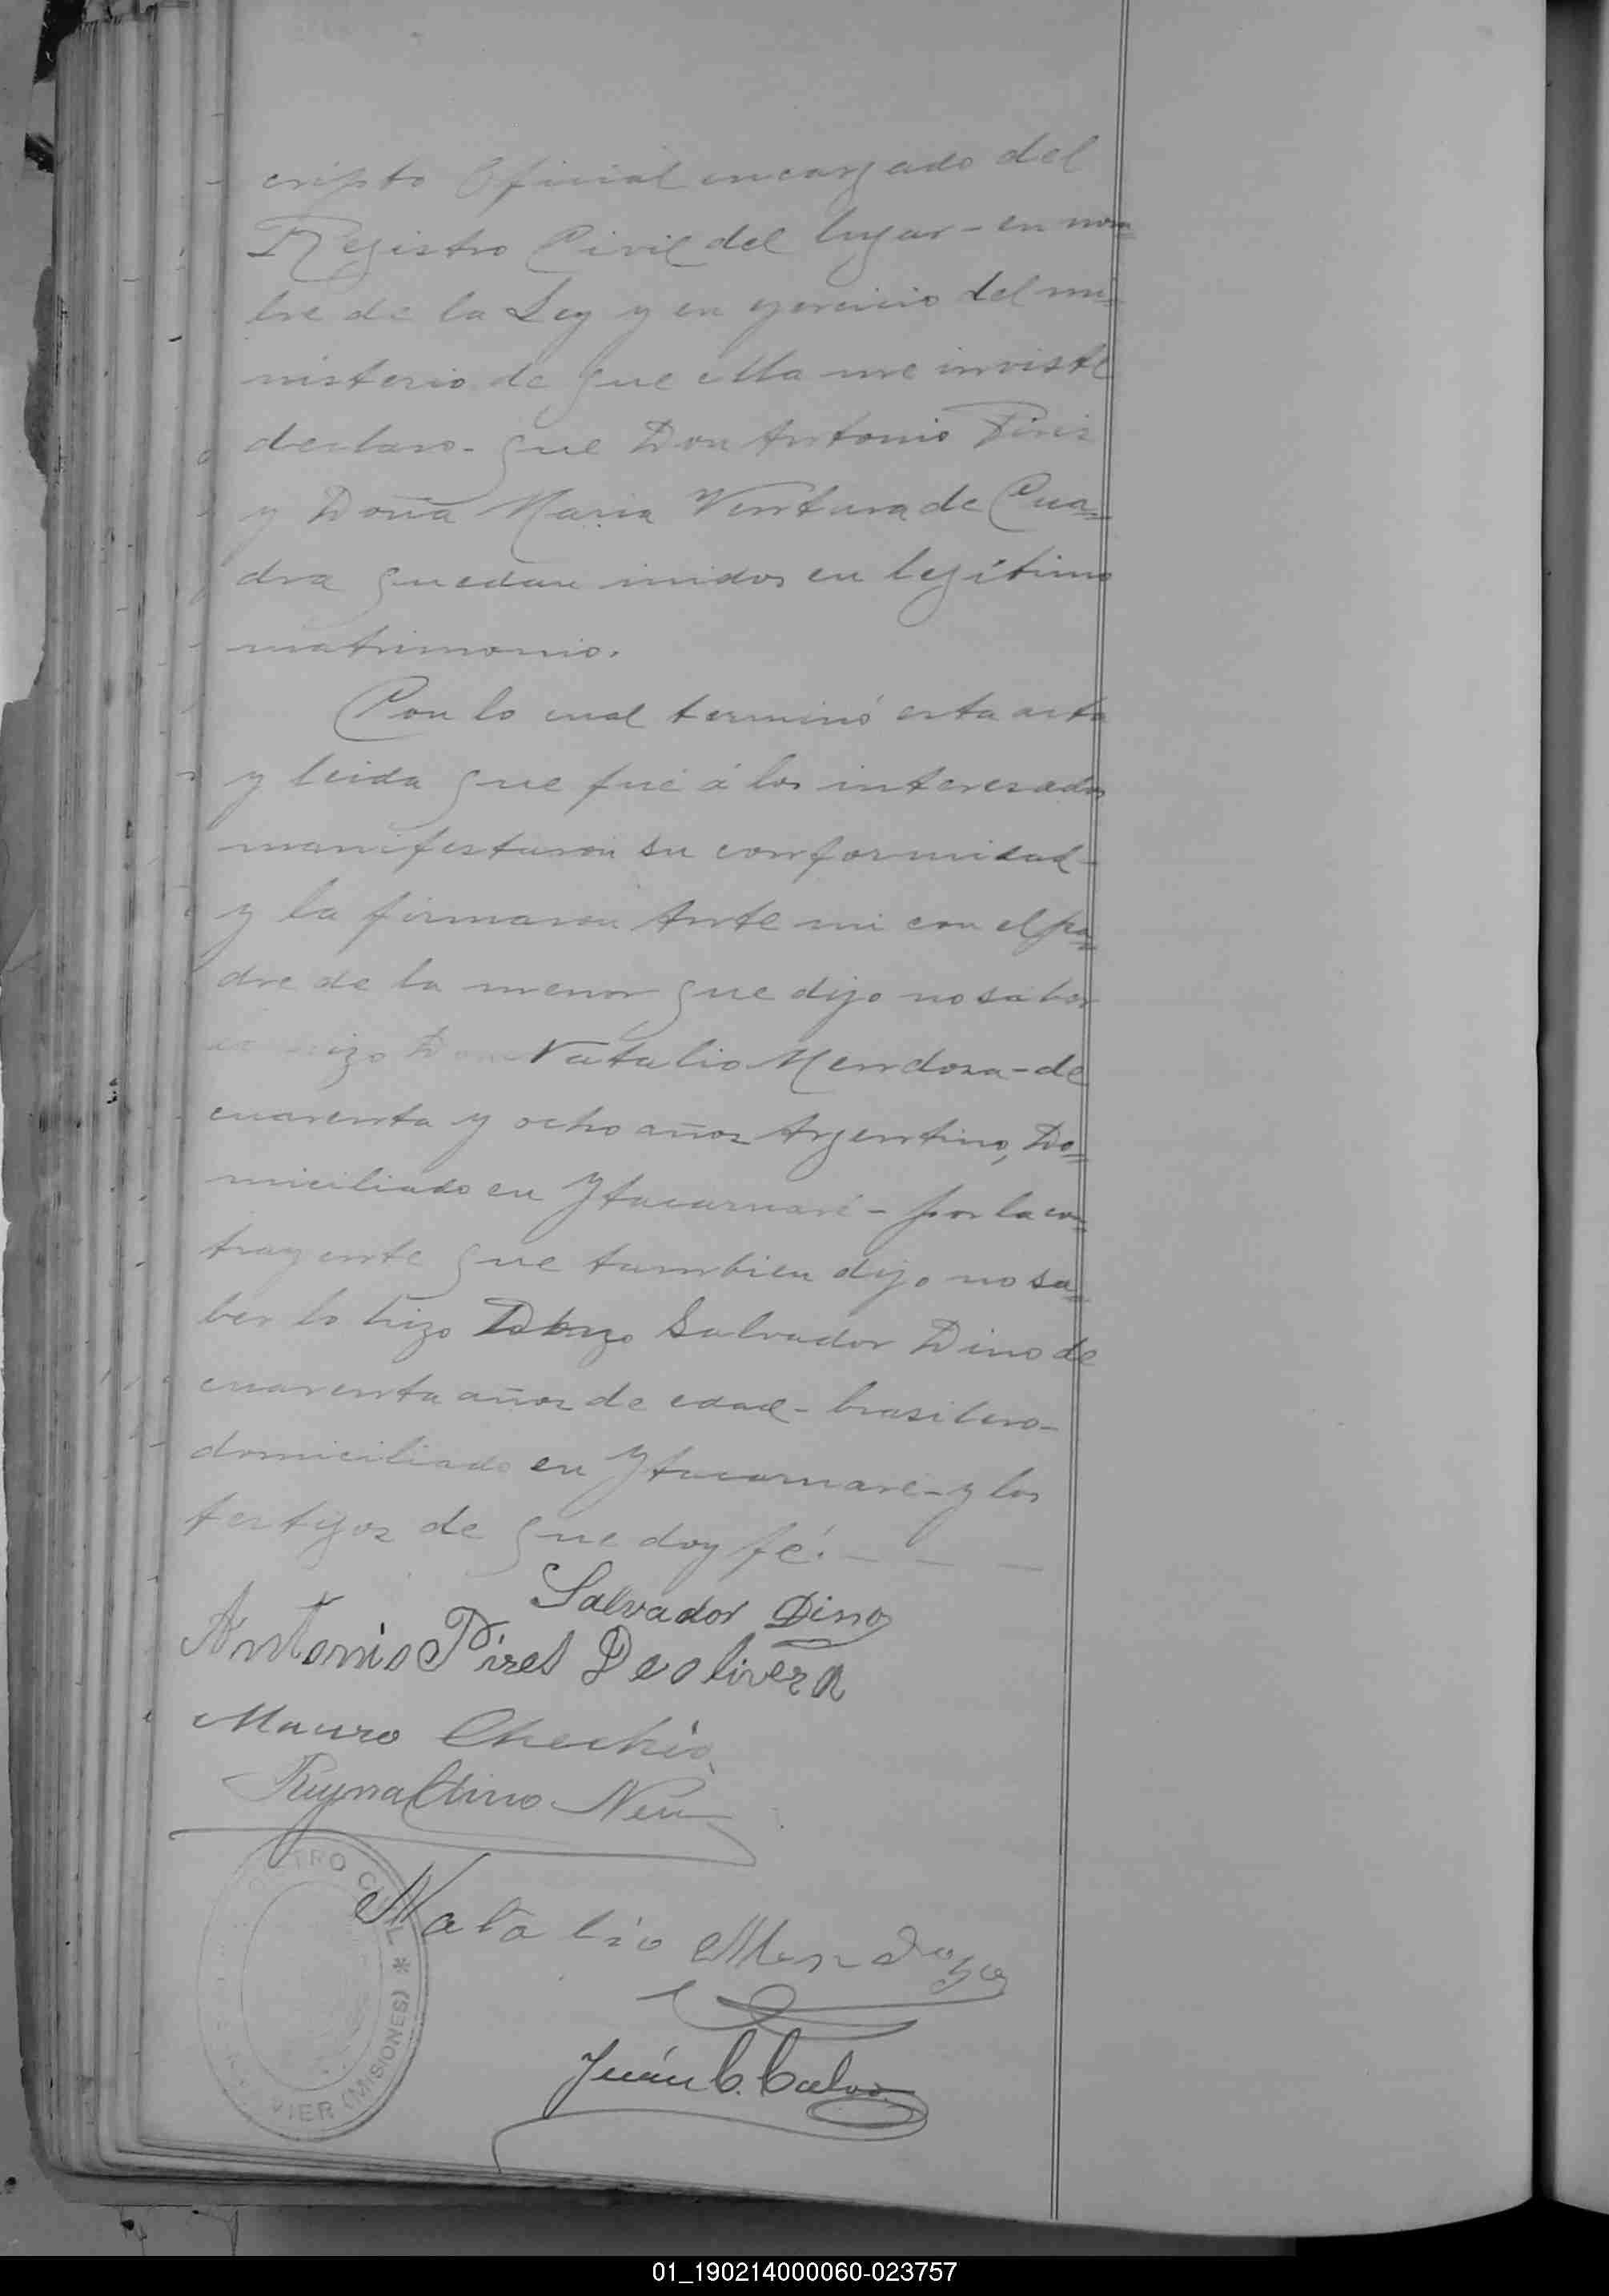 cripto Oficial encargado del
Registro Civil del lugar - en nom=
bre de la Ley y en ejercicio del mi=
nisterio de que ella me inviste
declaro - que Don Antonio Piris
y Doña Maria Ventura de Cua=
dra quedan unidos en legítimo
matrimonio.
Con lo cual terminó esta acta
y leida que fué á los interesados
manifestaron su conformidad -
y la firmaron Ante mi con el pa=
dre de la menor que dijo no saber
Don Natalio Mendoza - de
cuarenta y ocho años Argentino, Do=
miciliado en Ytacaruaré - por la con=
trayente que tambien dijo no sa=
ber lo hizo Salvador Dino de
cuarenta años de edad - brasilero -
domiciliado en Ytacaruare - y los
testigos de que doy fé. - - -
Salvador Dino
Antonio Pires De olivera
Mauro Chechio
Reynaldino Neu
Natalio Mendoza
Juán C. Calvo
REGISTRO CIVIL * JAVIER (MISIONES)
01_190214000060-023757